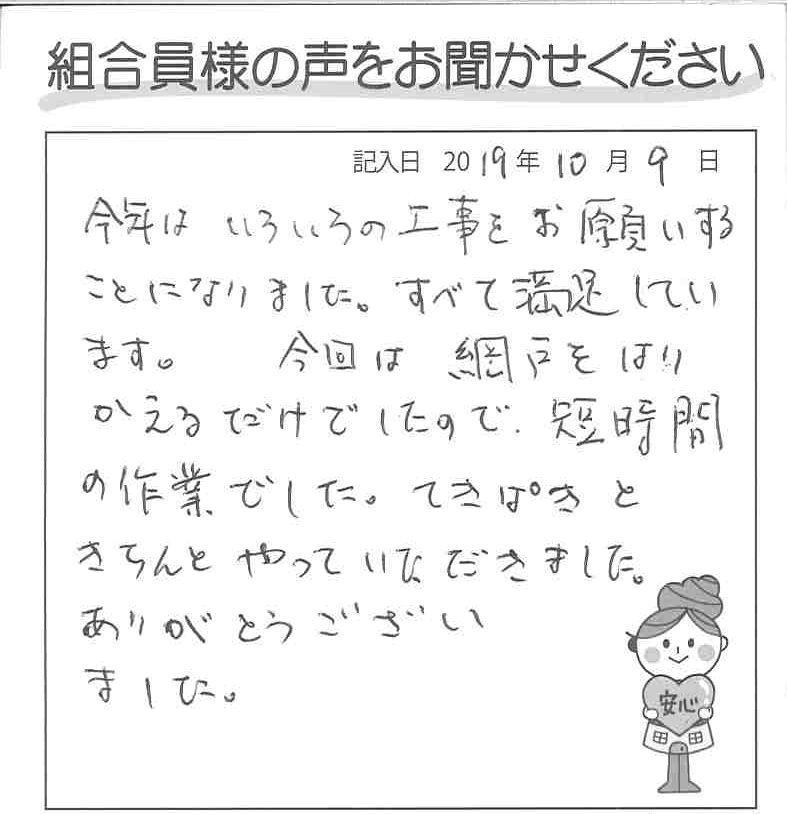 組合員様の声をお聞かせください
記入日 2019年10月9日
今年は いろいろの工事を お願いする
ことになりました。すべて満足してい
ます。 今回は 網戸を はり
かえるだけでしたので、短時間
の作業でした。てきぱきと
きちんと やって いただきました。
ありがとうござい
ました。
安心